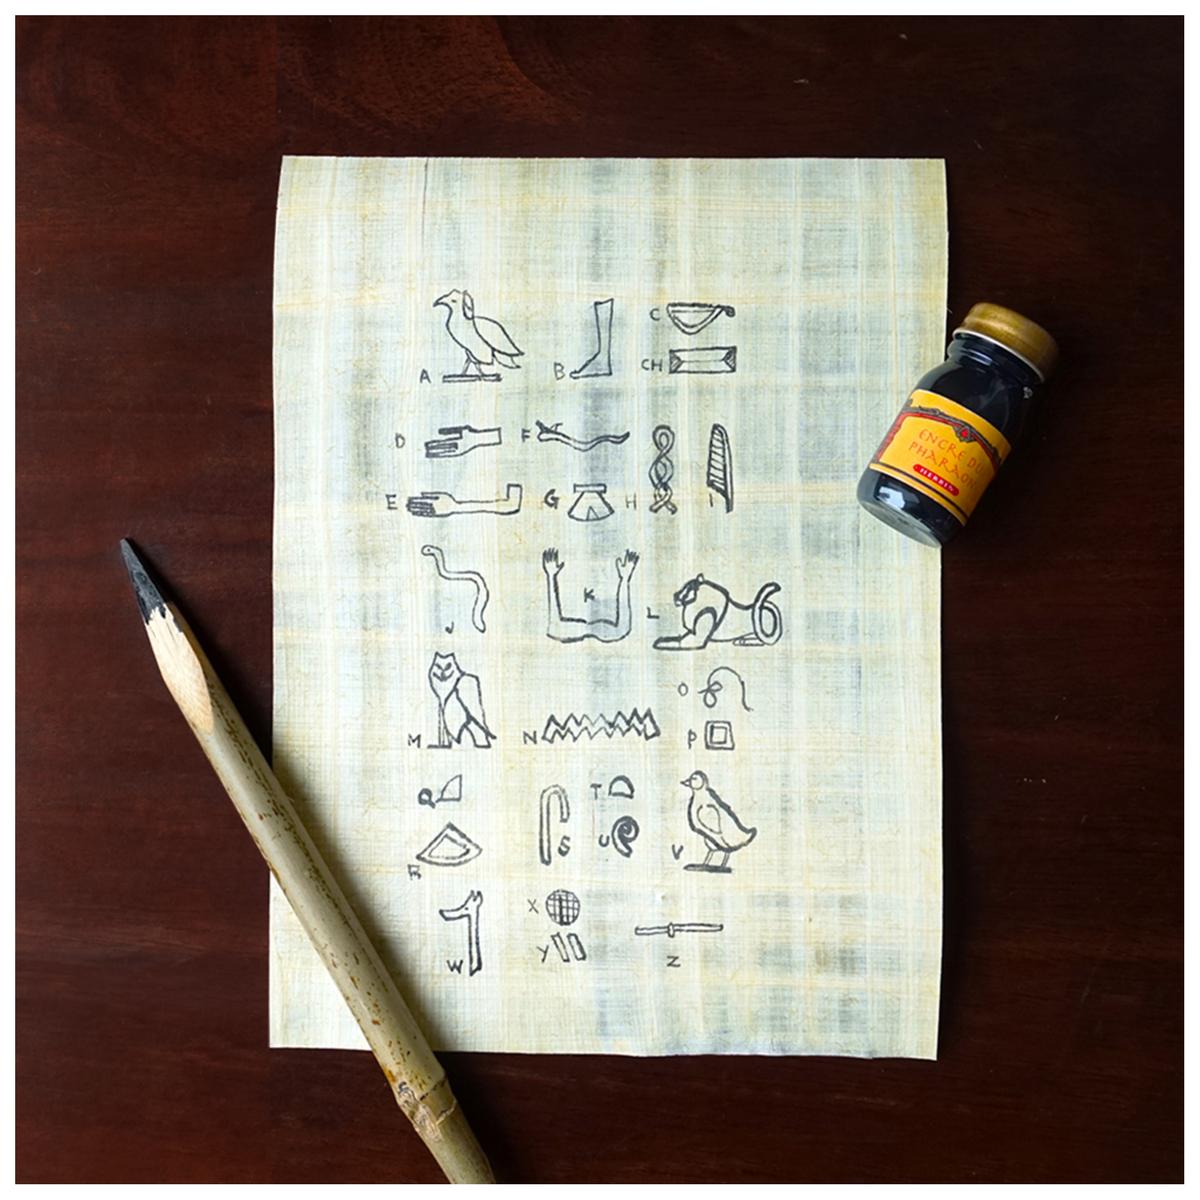 A B C
CH
D F H I
E G
J K L
M N O
P
Q S T V
R U
W X Z
Y
ENCRE DU
PHARAON
HERBIN